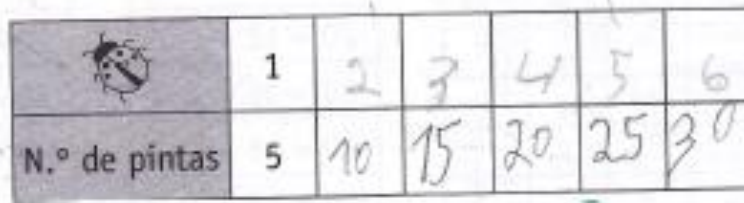 1 2 3 4 5 6
N.º de pintas 5 10 15 20 25 30